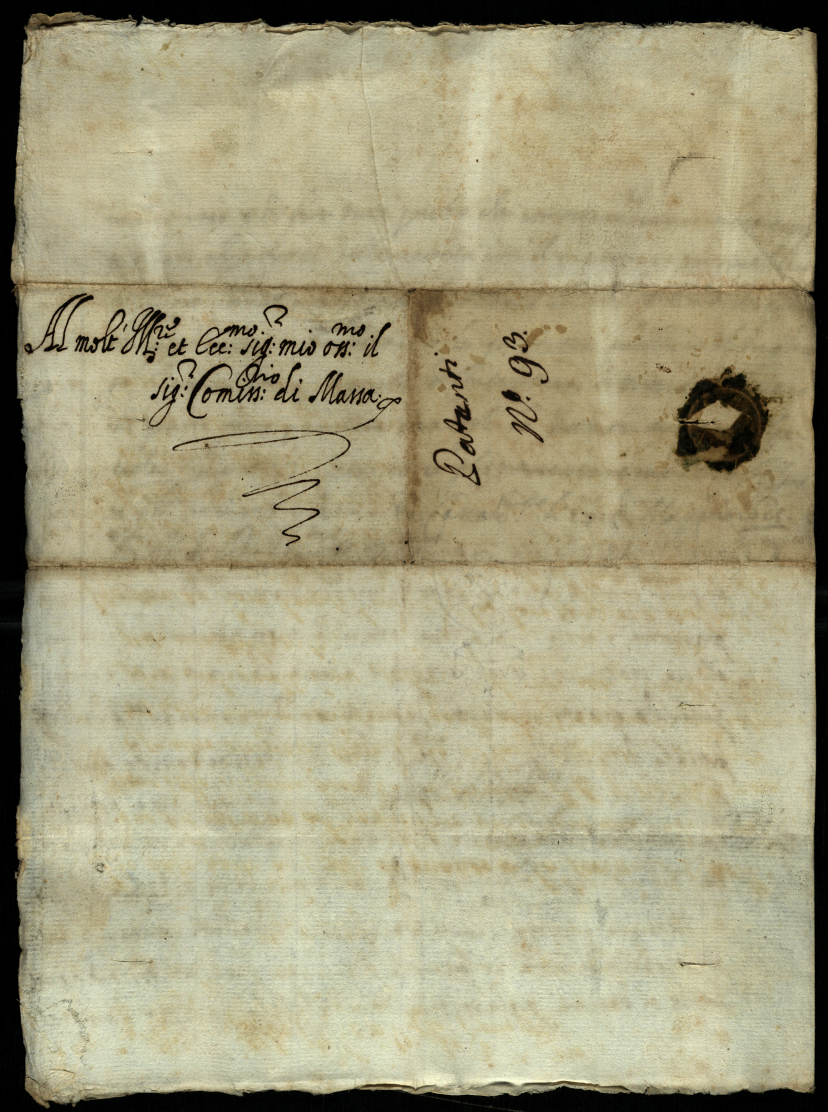 Al molt' Ill:re et Ecc:mo sig:r mio oss:mo il
sig:r Comiss:rio di Massa:
Patenti
N.º 93.